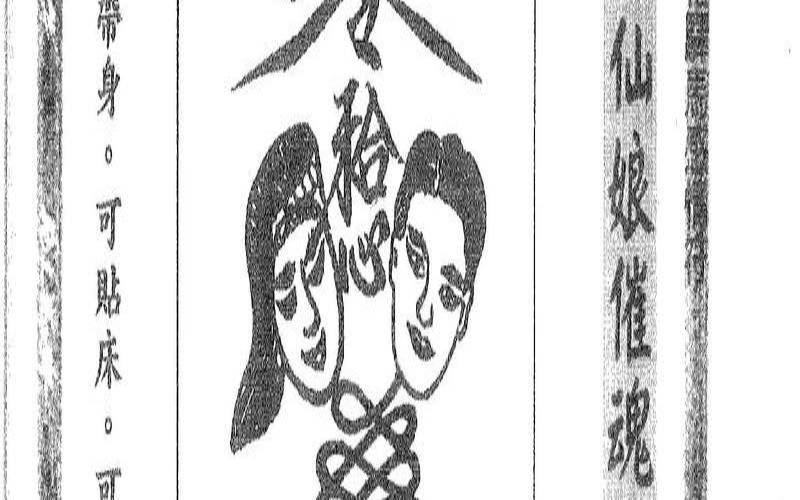 仙娘催魂
拾心
帶身。可貼床。可